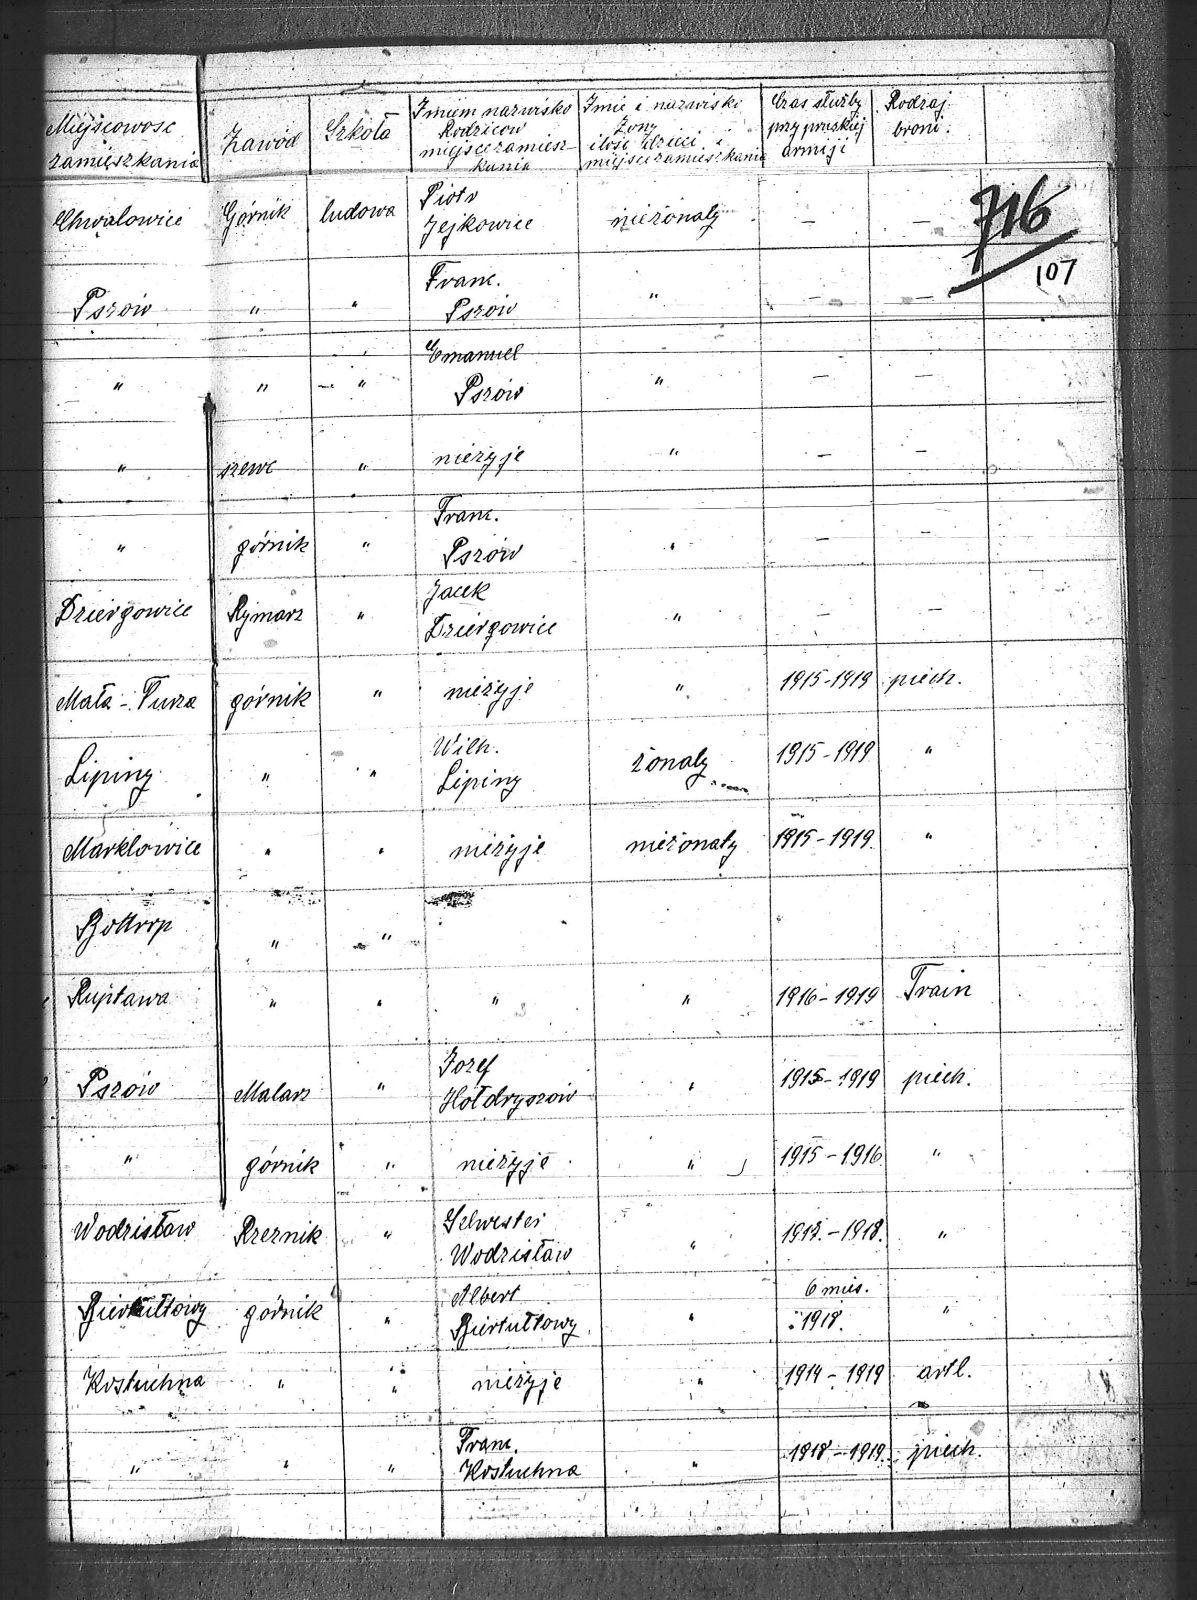 Miejscowosc zamieszkania Zawód Szkoła Imiem nazwisko Rodziców miejsce zamieszkania Imie i nazwisko Żony ilość dzieci i miejsce zamieszkania Czas służby przy pruskiej armiji Rodzaj broni.
716
107
Chwałowice Górnik ludowa Piotr Jejkowice nieżonaty — —
Pszów " " Franc. Pszów " — —
" " " Emanuel Pszów " — —
" szewc " nieżyje " — —
" górnik " Franc. Pszów " — —
Dziergowice Rymarz " Jacek Dziergowice " — —
Mała - Turza górnik " nieżyje " 1915-1919 piech.
Lipiny " " Wilh. Lipiny żonaty 1915-1919 "
Marklowice " " nieżyje nieżonaty 1915-1919. "
Bottrop " "
Ruptawa " " " " 1916-1919 Train
Pszów Malarz " Jozef Hołdryszów " 1915-1919 piech.
" górnik " nieżyje " 1915-1916 "
Wodzisław Rzeznik " Sylwester Wodzisław " 1917.-1918. "
Biertułtowy górnik " Albert Biertułtowy " 6 mies. 1918. "
Kostuchna " " nieżyje " 1914-1919 artl.
" " " Franc. Kostuchna " 1918-1919. piech.